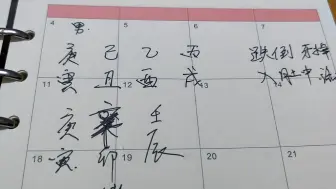 4 男 5 6 7
庚 己 乙 丙 跌倒 牙掉
寅 丑 酉 戌
11 12 13 14
庚 壬
寅 卯 辰
18 19 20 21